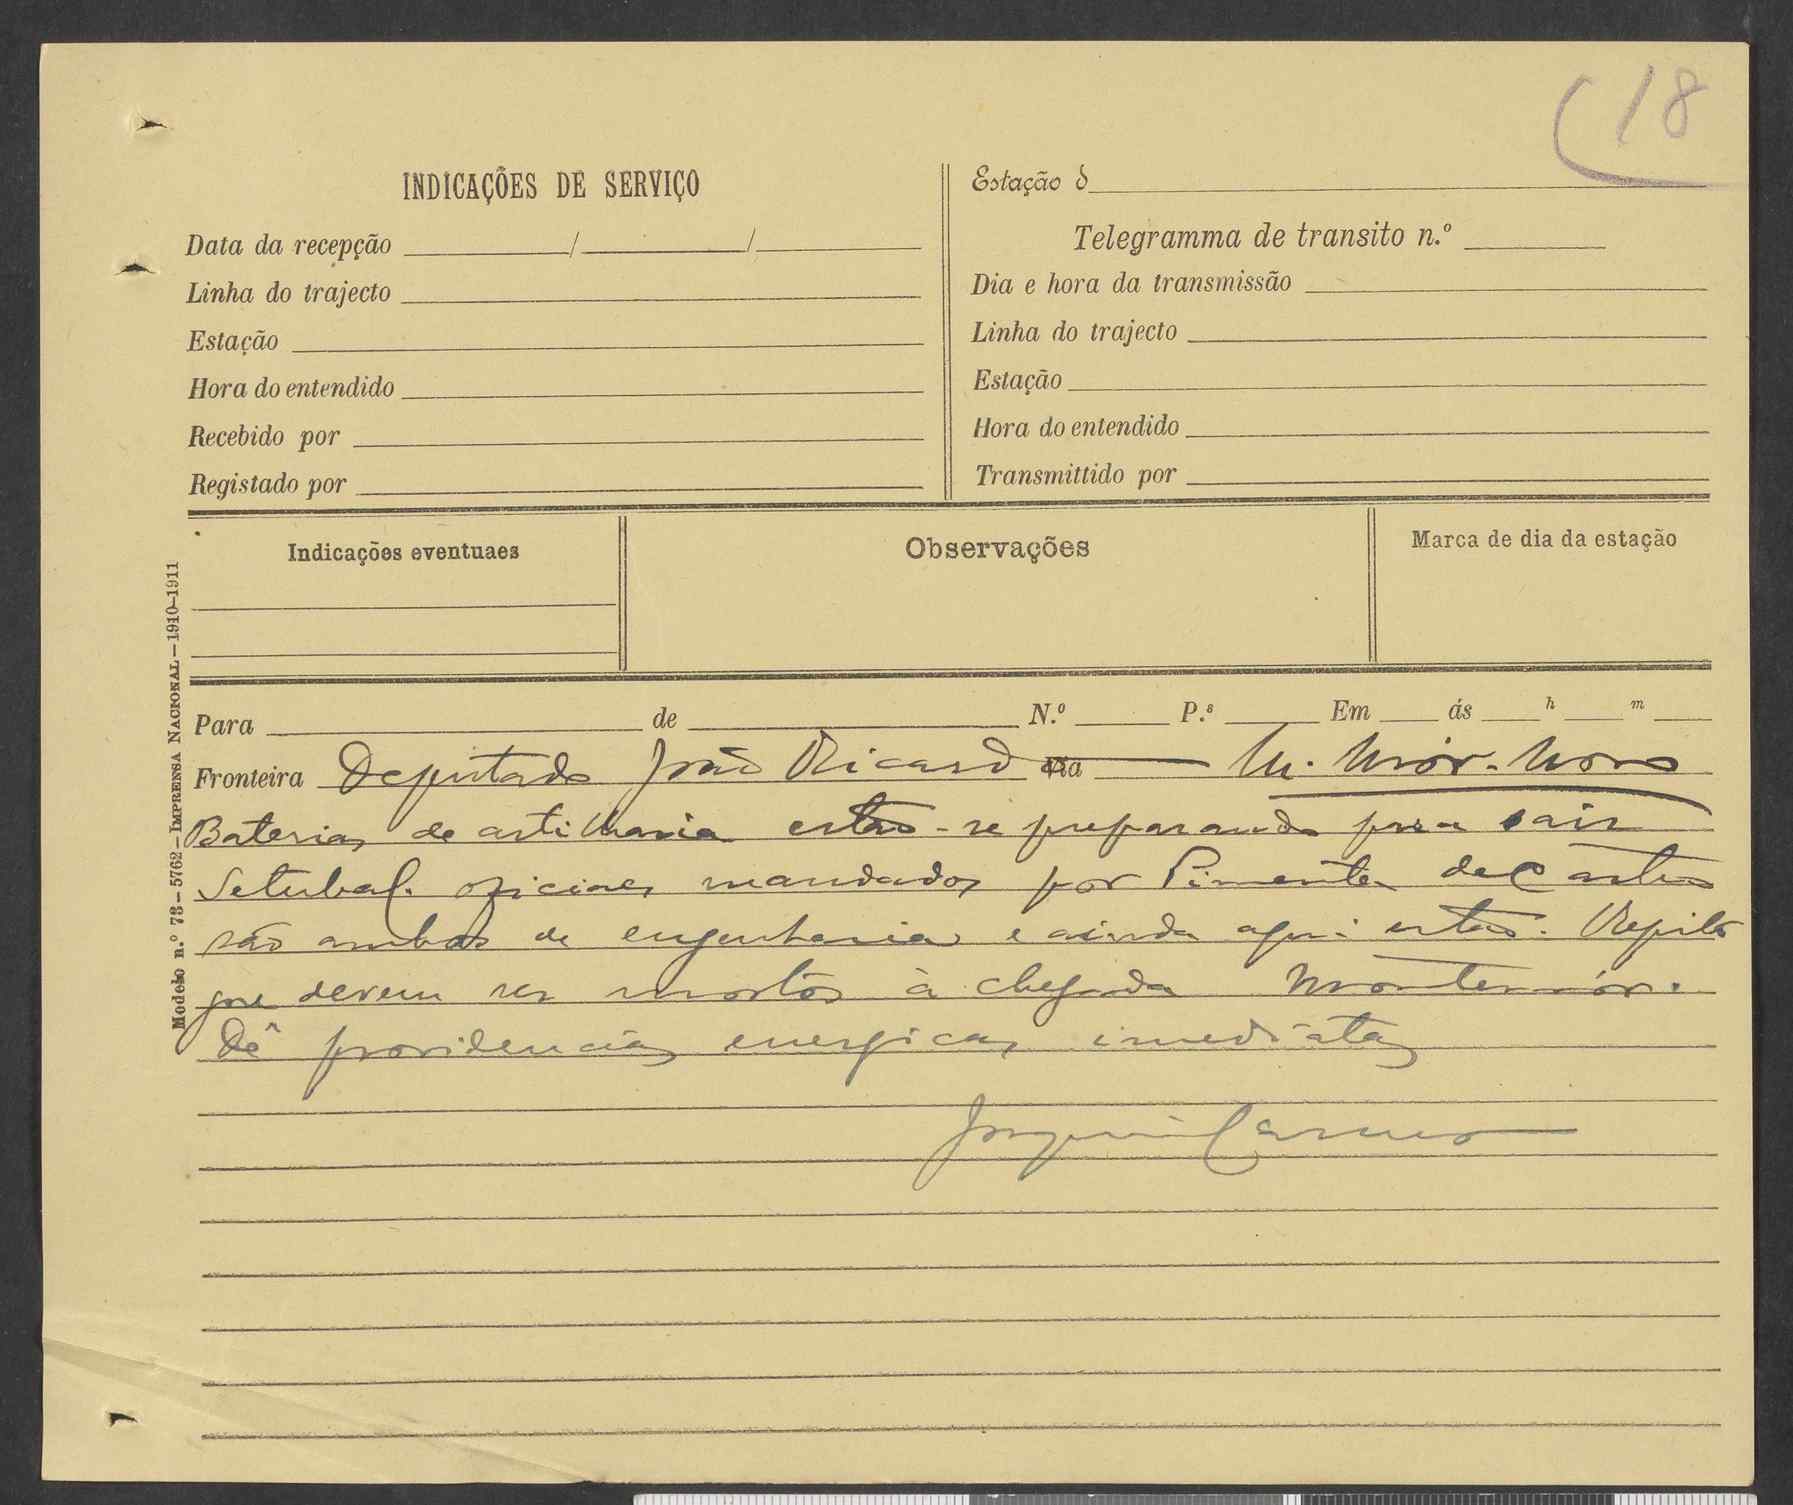 (18
INDICAÇÕES DE SERVIÇO
Data da recepção / /
Linha do trajecto
Estação
Hora do entendido
Recebido por
Registado por
Estação d
Telegramma de transito n.º
Dia e hora da transmissão
Linha do trajecto
Estação
Hora do entendido
Transmittido por
Indicações eventuaes
Observações
Marca de dia da estação
Modelo n.º 73—5762—IMPRENSA NACIONAL—1910-1911
Para de N.º P.ª Em ás h m
Fronteira Deputado João Ricardo via M. Mór-Novo
Baterias de artilharia estão-se preparando para sair
Setubal. oficiaes mandados por Pimenta de Castro
são ambos de engenharia e ainda aqui estão. Repito
que devem ser mortos à chegada Montemór.
Dê providencias energicas, imediatas
Joaquim